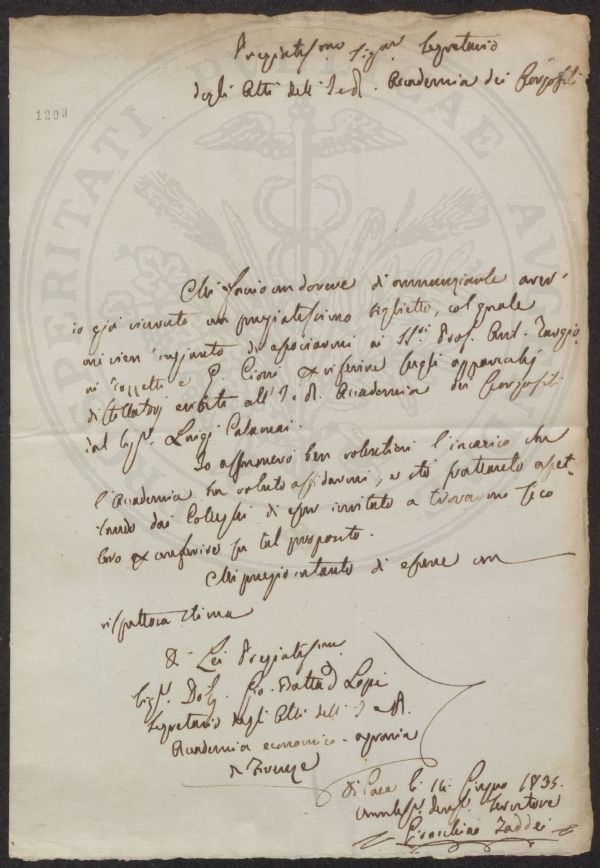 Pregiatissmo Sigr Segretario
degli Atti dell' I. e R. Accademia dei Georgofili
1299
PROSPERITATI PUBLICAE AUGENDAE
Mi faccio un dovere di annunziarle aver
io già ricevuto un pregiatissimo biglietto, col quale
mi vien ingiunto di associarmi ai SSri Prof. Ant. Targio
ni Tozzetti e G. Cioni per riferire sugli apparecchj
distillatorj esibiti all' I. R. Accademia dei Georgofili
dal Sigr Luigi Calamai.
Io assumerò ben volentieri l'incarico che
l'Accademia ha voluto affidarmi, e stò frattanto aspet-
tando dai Colleghi di esser invitato a trovarmi seco
loro per conferire su tal proposito.
Mi pregio intanto di essere con
rispettosa stima
Di Lei Pregiatissmo
Sigr Dott. Gio. Batta
Segretario degli Atti dell' I. e R.
Accademia economico-agraria
di Firenze
di Casa li 14 Giugno 1835.
Servitore
Gioacchino Taddei